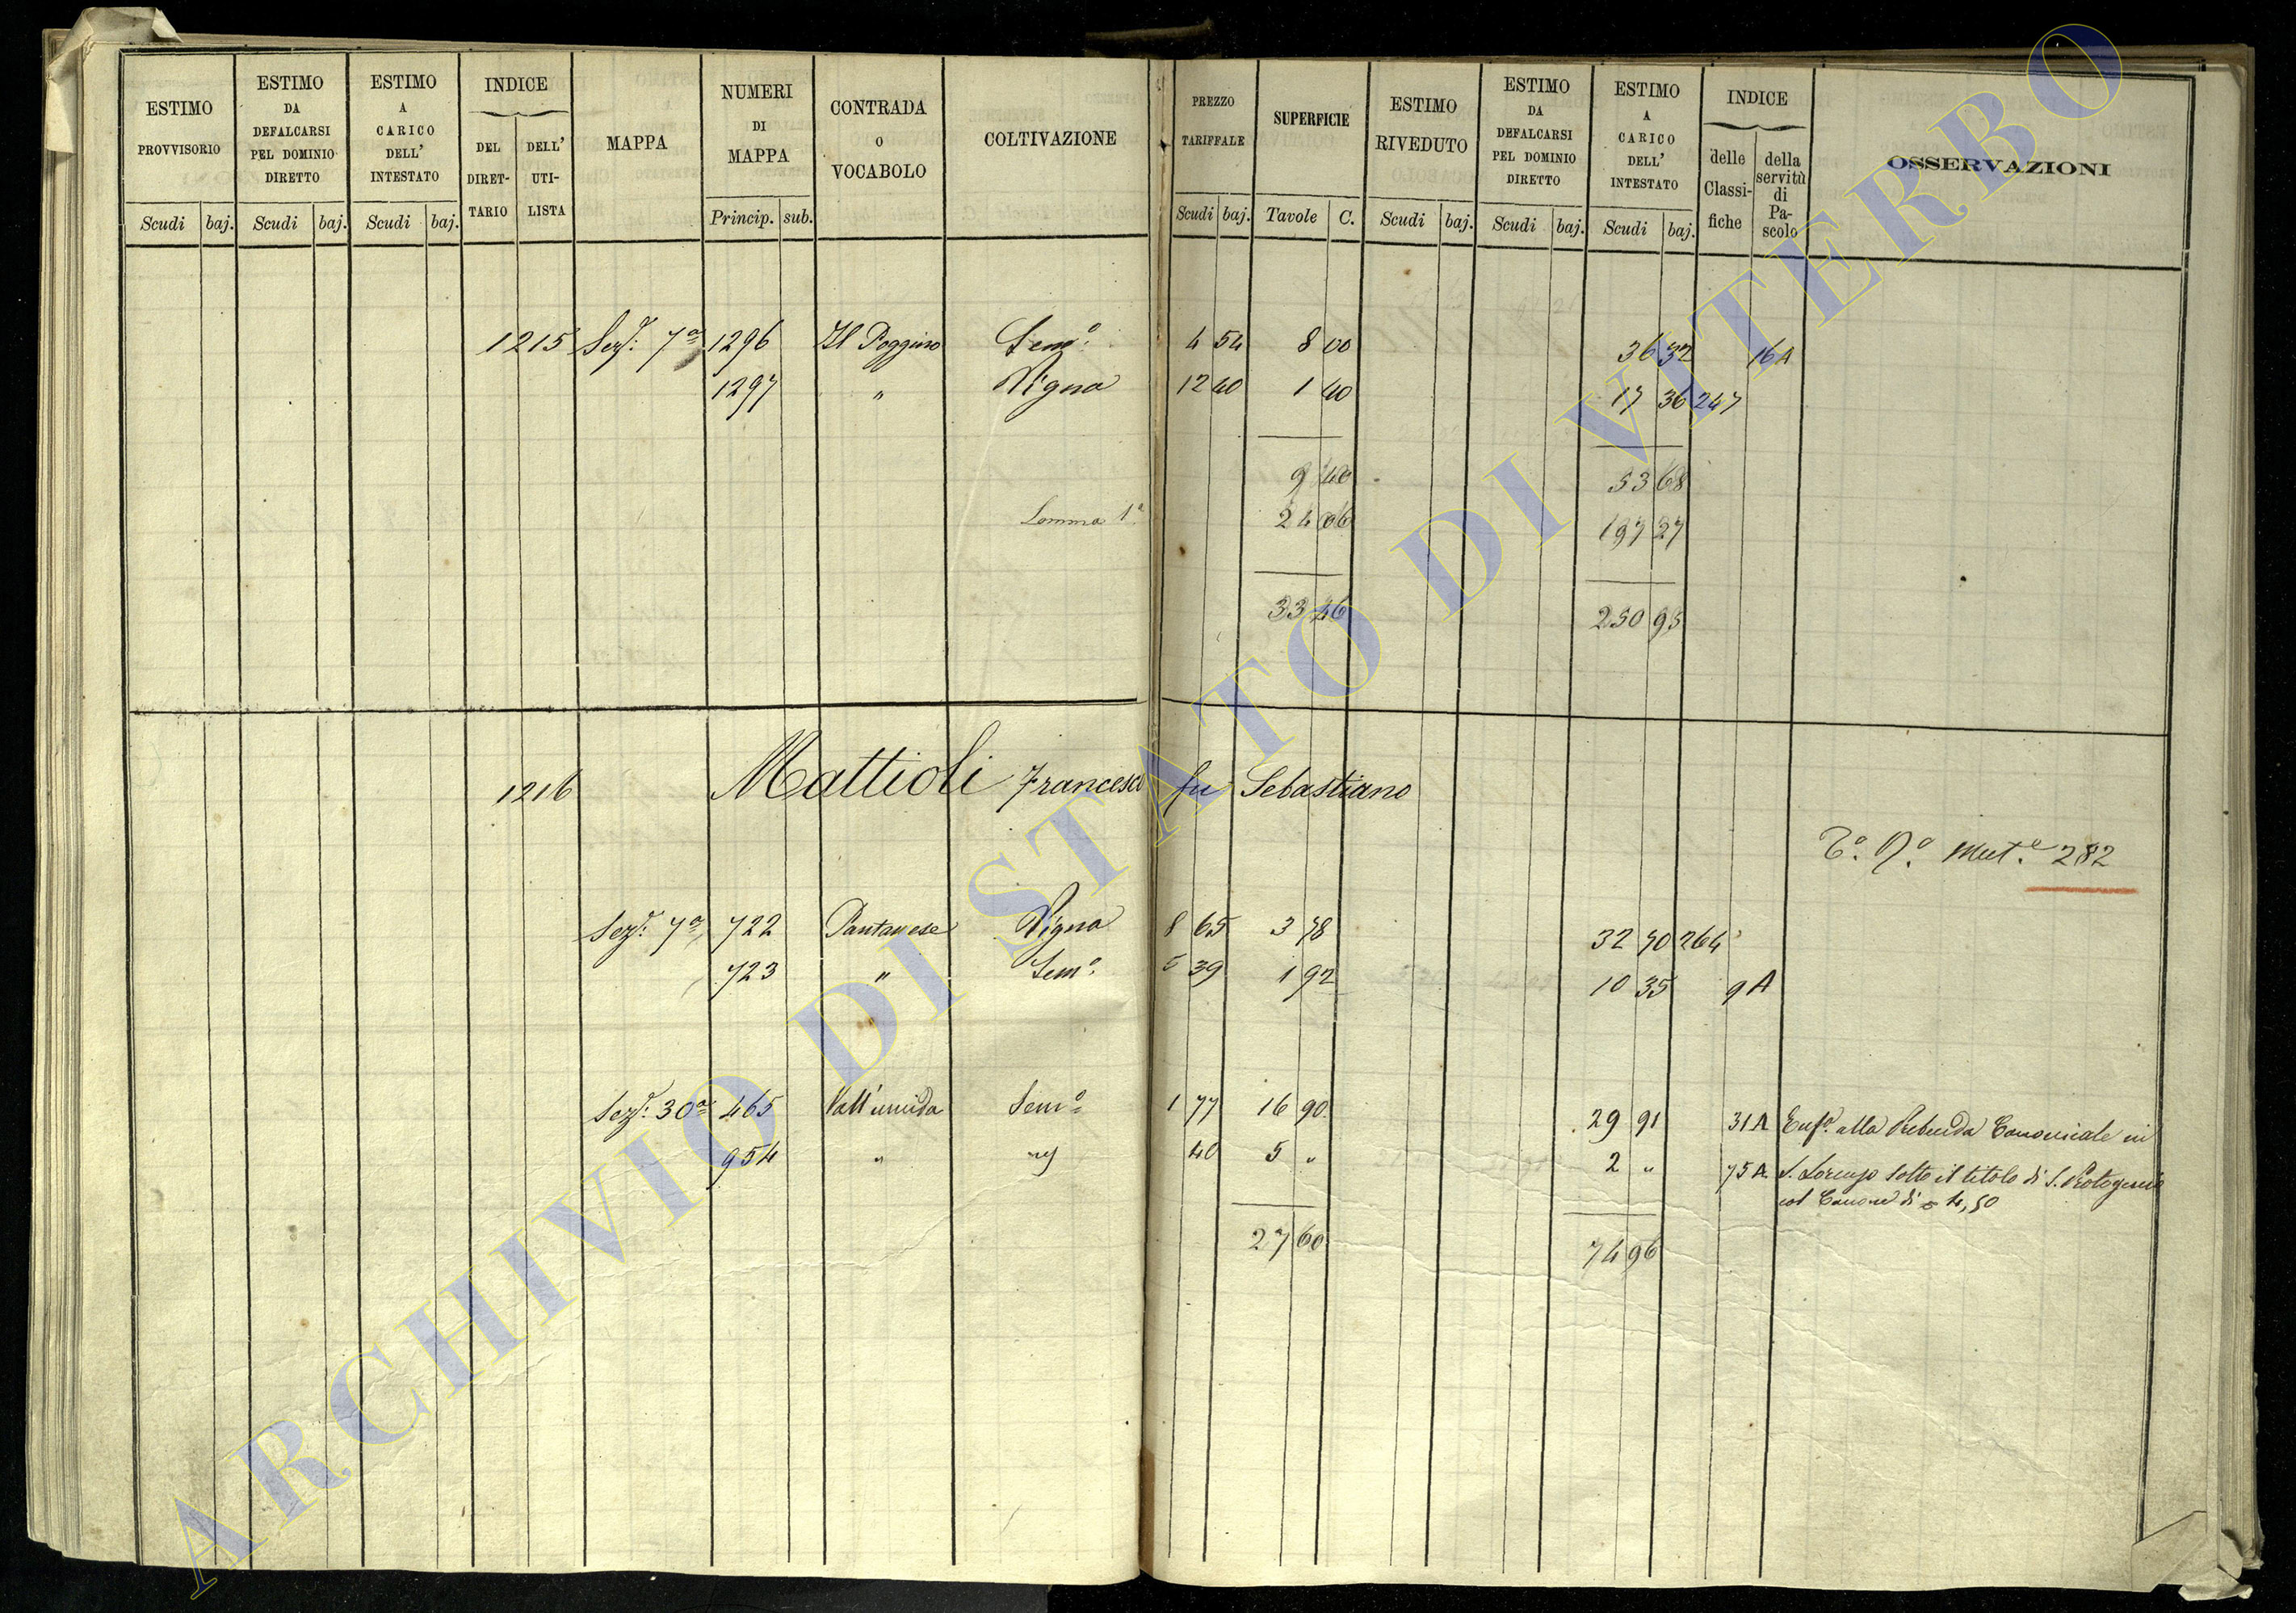 ESTIMO PROVVISORIO | ESTIMO DA DEFALCARSI PEL DOMINIO DIRETTO | ESTIMO A CARICO DELL' INTESTATO | INDICE DEL DIRETTARIO | DELL' UTILISTA | MAPPA | NUMERI DI MAPPA | CONTRADA O VOCABOLO | COLTIVAZIONE | PREZZO TARIFFALE | SUPERFICIE | ESTIMO RIVEDUTO | ESTIMO DA DEFALCARSI PEL DOMINIO DIRETTO | ESTIMO A CARICO DELL' INTESTATO | INDICE delle Classifiche | della servitù di Pascolo | OSSERVAZIONI
Scudi baj. Scudi baj. Scudi baj. Princip. sub. Scudi baj. Tavole C. Scudi baj. Scudi baj. Scudi baj.
1215 Sez.e 7a 1296 Il Poggino Sem.o 4 54 8 00 36 32 16A
1297 " Vigna 12 40 1 40 17 36 247
9 40 53 68
Somma 1a 24 06 197 27
33 46 250 95
1216 Mattioli Francesco fu Sebastiano
To. No. Mut.e 282
Sez.e 7a 722 Pantanese Vigna 8 65 3 78 32 70 264
723 " Sem.o 5 39 1 92 10 35 9A
Sez.e 30a 465 Vall'umida Sem.o 1 77 16 90 29 91 31A Enf.a alla Prebenda Canonicale in
954 " 40 5 " 2 " 75A S. Lorenzo sotto il titolo di S. Protogenio
col Canone di 4,50
27 60 74 96
ARCHIVIO DI STATO DI VITERBO